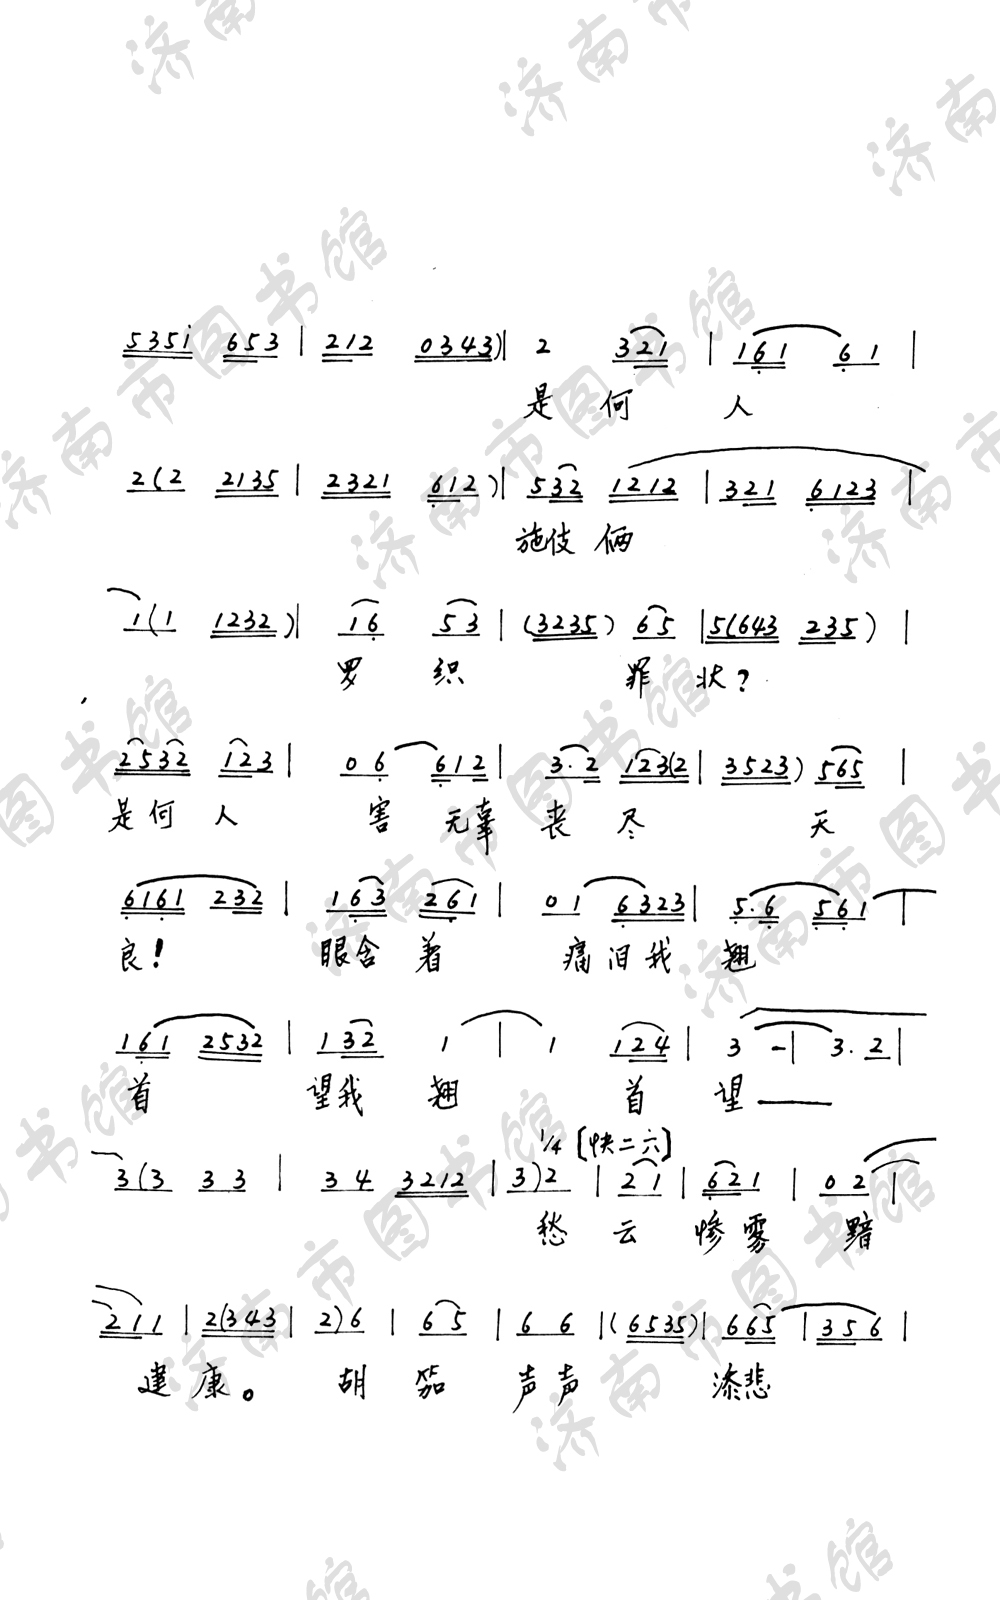 5351̇ 653 | 212 0343) | 2 321 | 161 61 |
是何人
2(2 2135 | 2321 612) | 532 1212 | 321 6123 |
施伎俩
1(1 1232) | 16 53 | (3235) 65 | 5(643 235) |
罗织罪状?
2532 123 | 06 612 | 3·2 123(2 | 3523) 565 |
是何人害无辜丧尽天
6161 232 | 163 261 | 01 6323 | 5·6 561 |
良!眼含着痛泪我翘
161 2532 | 132 1 | 1 124 | 3 - | 3·2 |
首望我翘首望——
1/4 [快二六]
3(3 33 | 34 3212 | 3)2 | 21 | 621 | 02 |
愁云惨雾黯
211 | 2(343 | 2)6 | 65 | 66 | (6535) | 665 | 356 |
建康。胡笳声声添悲
济南市图书馆